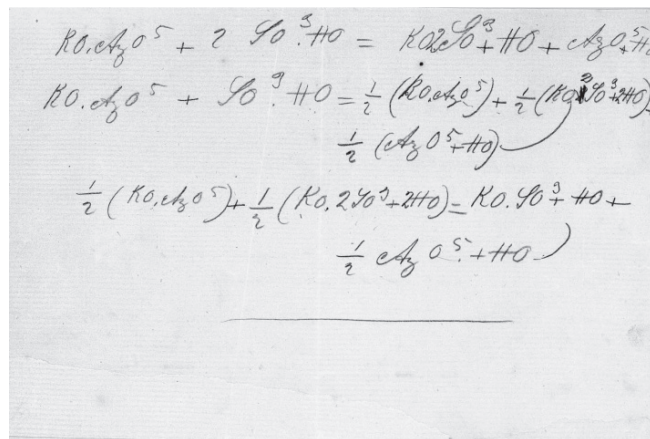 KO.AzO⁵ + 2 SO³.HO = KO2SO³+HO + AzO⁵+H
KO.AzO⁵ + SO³.HO = ½ (KO.AzO⁵) + ½ (KO 2SO³+2HO)+
½ (AzO⁵+HO)
½ (KO.AzO⁵) + ½ (KO.2SO³+2HO) = KO.SO³+HO+
½ AzO⁵.+HO